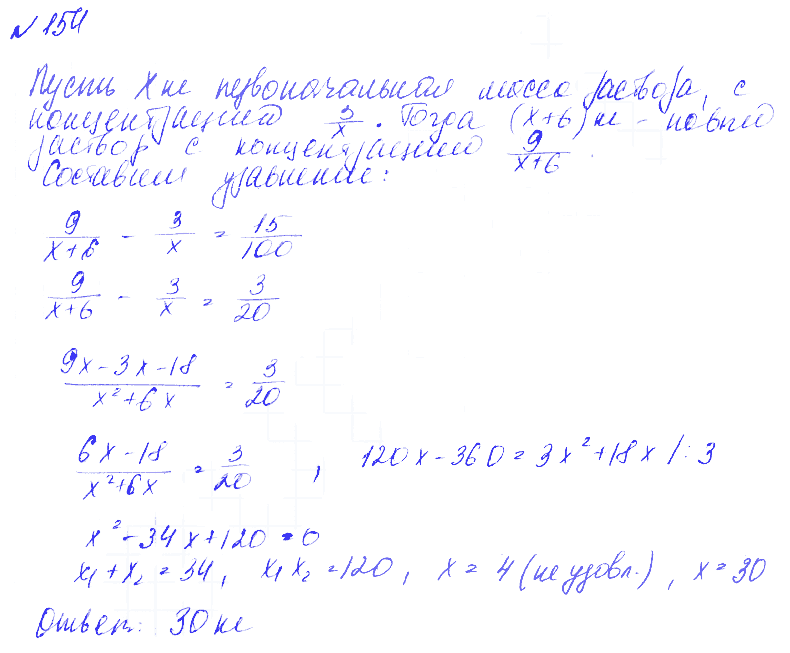 № 154
Пусть x кг первоначальная масса раствора, с
концентрацией 3/x. Тогда (x+6) кг - новый
раствор с концентрацией 9/(x+6).
Составим уравнение:
9/(x+6) - 3/x = 15/100
9/(x+6) - 3/x = 3/20
(9x-3x-18)/(x²+6x) = 3/20
(6x-18)/(x²+6x) = 3/20 , 120x-360=3x²+18x /:3
x²-34x+120=0
x₁+x₂=34, x₁x₂=120, x=4 (не удовл.), x=30
Ответ: 30 кг